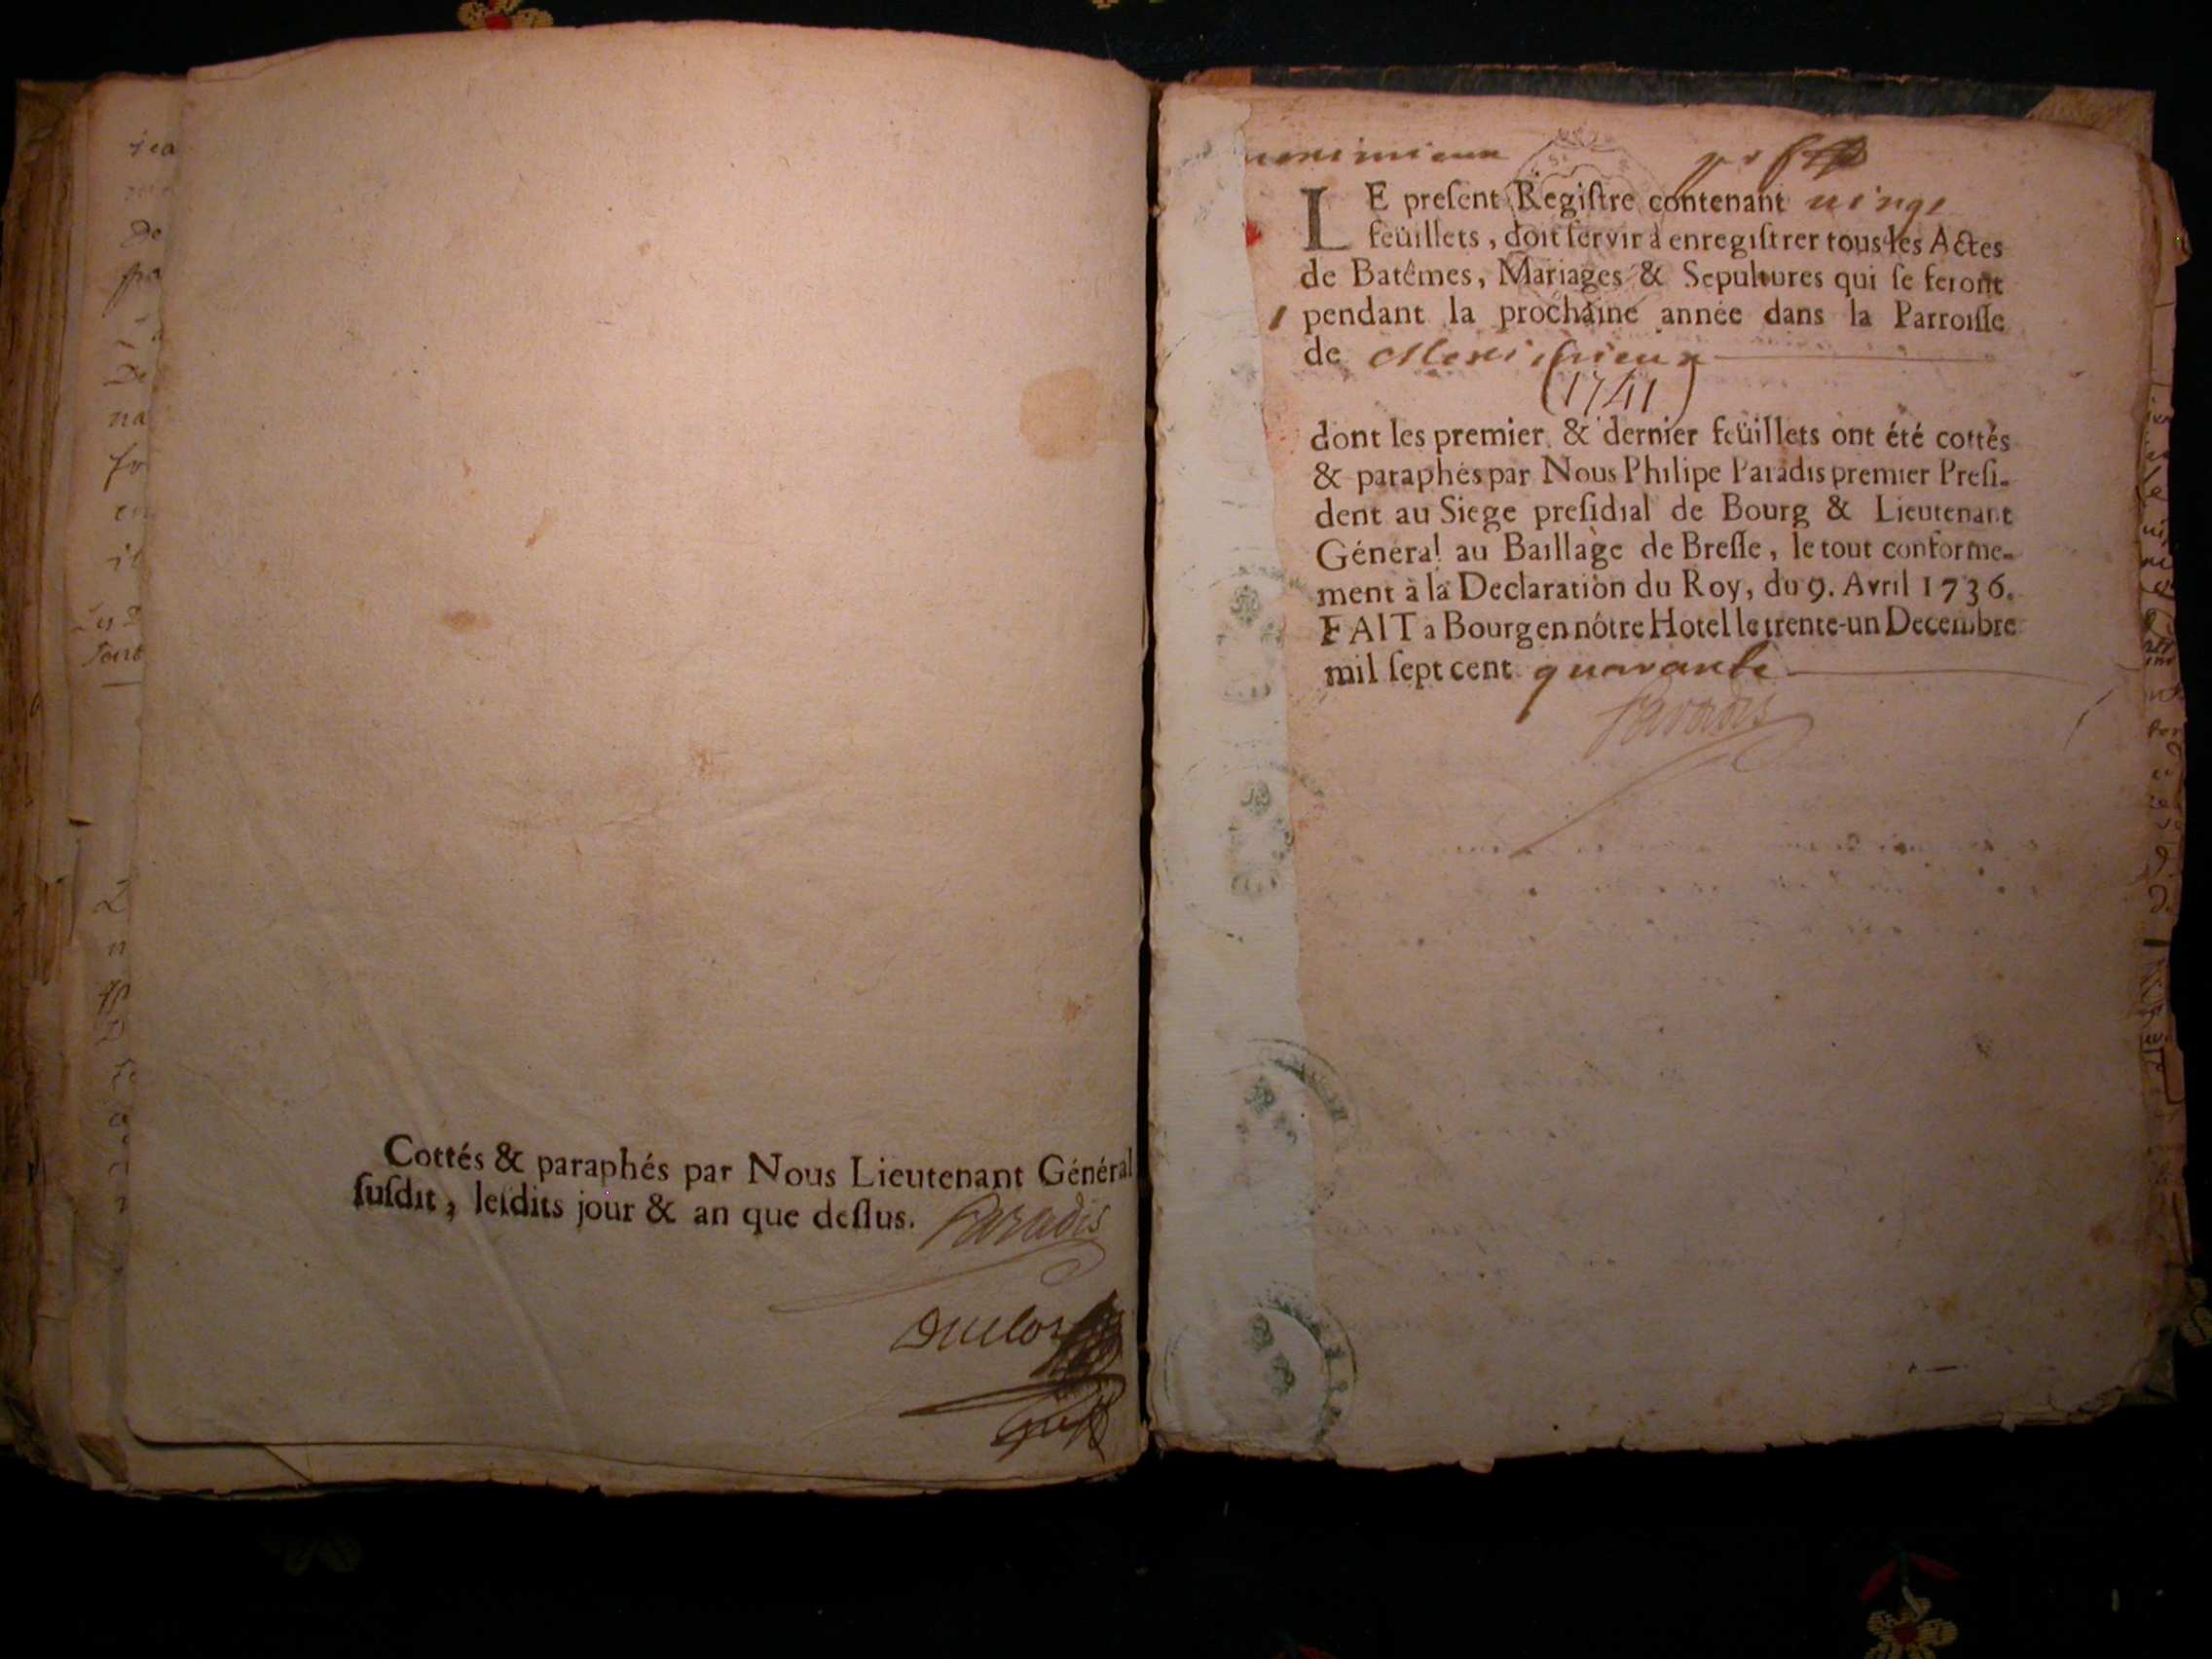 Cottés & paraphés par Nous Lieutenant Général
ſuſdit, leſdits jour & an que deſſus. Paradis
Duclos
meximieux
LE preſent Regiſtre contenant vingt
feüillets, doit ſervir à enregiſtrer tous les Actes
de Batêmes, Mariages & Sepultures qui ſe feront
1 pendant la prochaine année dans la Parroiſſe
de Meximieux
(1741)
dont les premier & dernier feüillets ont été cottés
& paraphés par Nous Philipe Paradis premier Preſi-
dent au Siege preſidial de Bourg & Lieutenant
Général au Baillage de Breſſe, le tout conforme-
ment à la Declaration du Roy, du 9. Avril 1736.
FAIT a Bourg en nôtre Hotel le trente-un Decembre
mil ſept cent quarante
Paradis